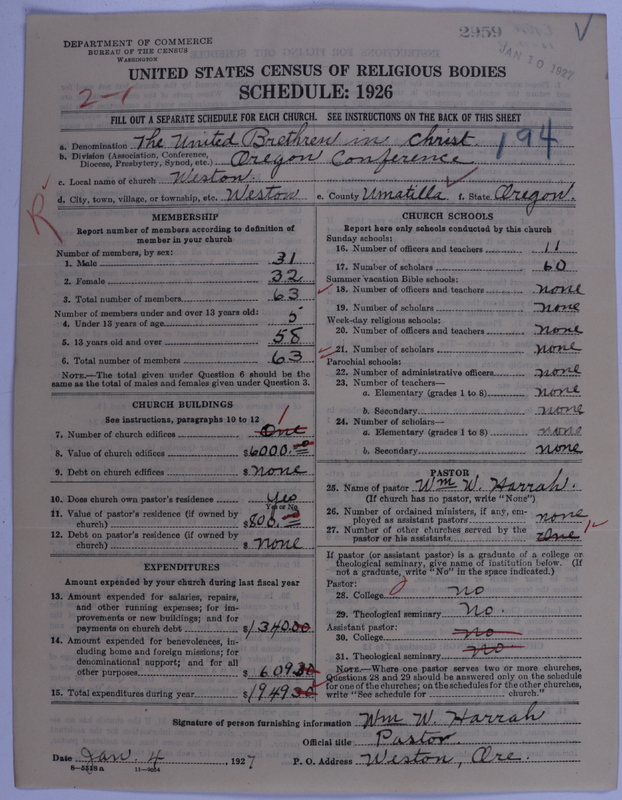 2959
JAN 10 1927
DEPARTMENT OF COMMERCE
BUREAU OF THE CENSUS
WASHINGTON
UNITED STATES CENSUS OF RELIGIOUS BODIES
SCHEDULE: 1926
2-1
FILL OUT A SEPARATE SCHEDULE FOR EACH CHURCH. SEE INSTRUCTIONS ON THE BACK OF THIS SHEET
a. Denomination The United Brethren in Christ. 194
b. Division (Association, Conference, Diocese, Presbytery, Synod, etc.) Oregon Conference
c. Local name of church Weston.
d. City, town, village, or township, etc. Weston e. County Umatilla f. State Oregon.
R
MEMBERSHIP
Report number of members according to definition of
member in your church
Number of members, by sex:
1. Male 31
2. Female 32
3. Total number of members 63
Number of members under and over 13 years old:
4. Under 13 years of age 5
5. 13 years old and over 58
6. Total number of members 63
NOTE.—The total given under Question 6 should be the
same as the total of males and females given under Question 3.
CHURCH BUILDINGS
See instructions, paragraphs 10 to 12
7. Number of church edifices One 1
8. Value of church edifices $6000.00
9. Debt on church edifices $ none
10. Does church own pastor's residence Yes
Yes or No
11. Value of pastor's residence (if owned by
church) $800.00
12. Debt on pastor's residence (if owned by
church) $ none
EXPENDITURES
Amount expended by your church during last fiscal year
13. Amount expended for salaries, repairs,
and other running expenses; for im-
provements or new buildings; and for
payments on church debt $1340.00
14. Amount expended for benevolences, in-
cluding home and foreign missions; for
denominational support; and for all
other purposes $ 609.30
15. Total expenditures during year $1949.30
CHURCH SCHOOLS
Report here only schools conducted by this church
Sunday schools:
16. Number of officers and teachers 11
17. Number of scholars 60
Summer vacation Bible schools:
18. Number of officers and teachers none
19. Number of scholars none
Week-day religious schools:
20. Number of officers and teachers none
21. Number of scholars none
Parochial schools:
22. Number of administrative officers none
23. Number of teachers—
a. Elementary (grades 1 to 8) none
b. Secondary none
24. Number of scholars—
a. Elementary (grades 1 to 8) none
b. Secondary none
PASTOR
25. Name of pastor Wm W. Harrah.
(If church has no pastor, write "None")
26. Number of ordained ministers, if any, em-
ployed as assistant pastors none
27. Number of other churches served by the
pastor or his assistants 1
If pastor (or assistant pastor) is a graduate of a college or
theological seminary, give name of institution below. (If
not a graduate, write "No" in the space indicated.)
Pastor:
28. College no
29. Theological seminary No.
Assistant pastor:
30. College no
31. Theological seminary no
NOTE.—Where one pastor serves two or more churches,
Questions 28 and 29 should be answered only on the schedule
for one of the churches; on the schedules for the other churches,
write "See schedule for church."
Signature of person furnishing information Wm W. Harrah
Official title Pastor.
Date Jan. 4, 1927 P. O. Address Weston, Ore.
8—5518a 11—9024